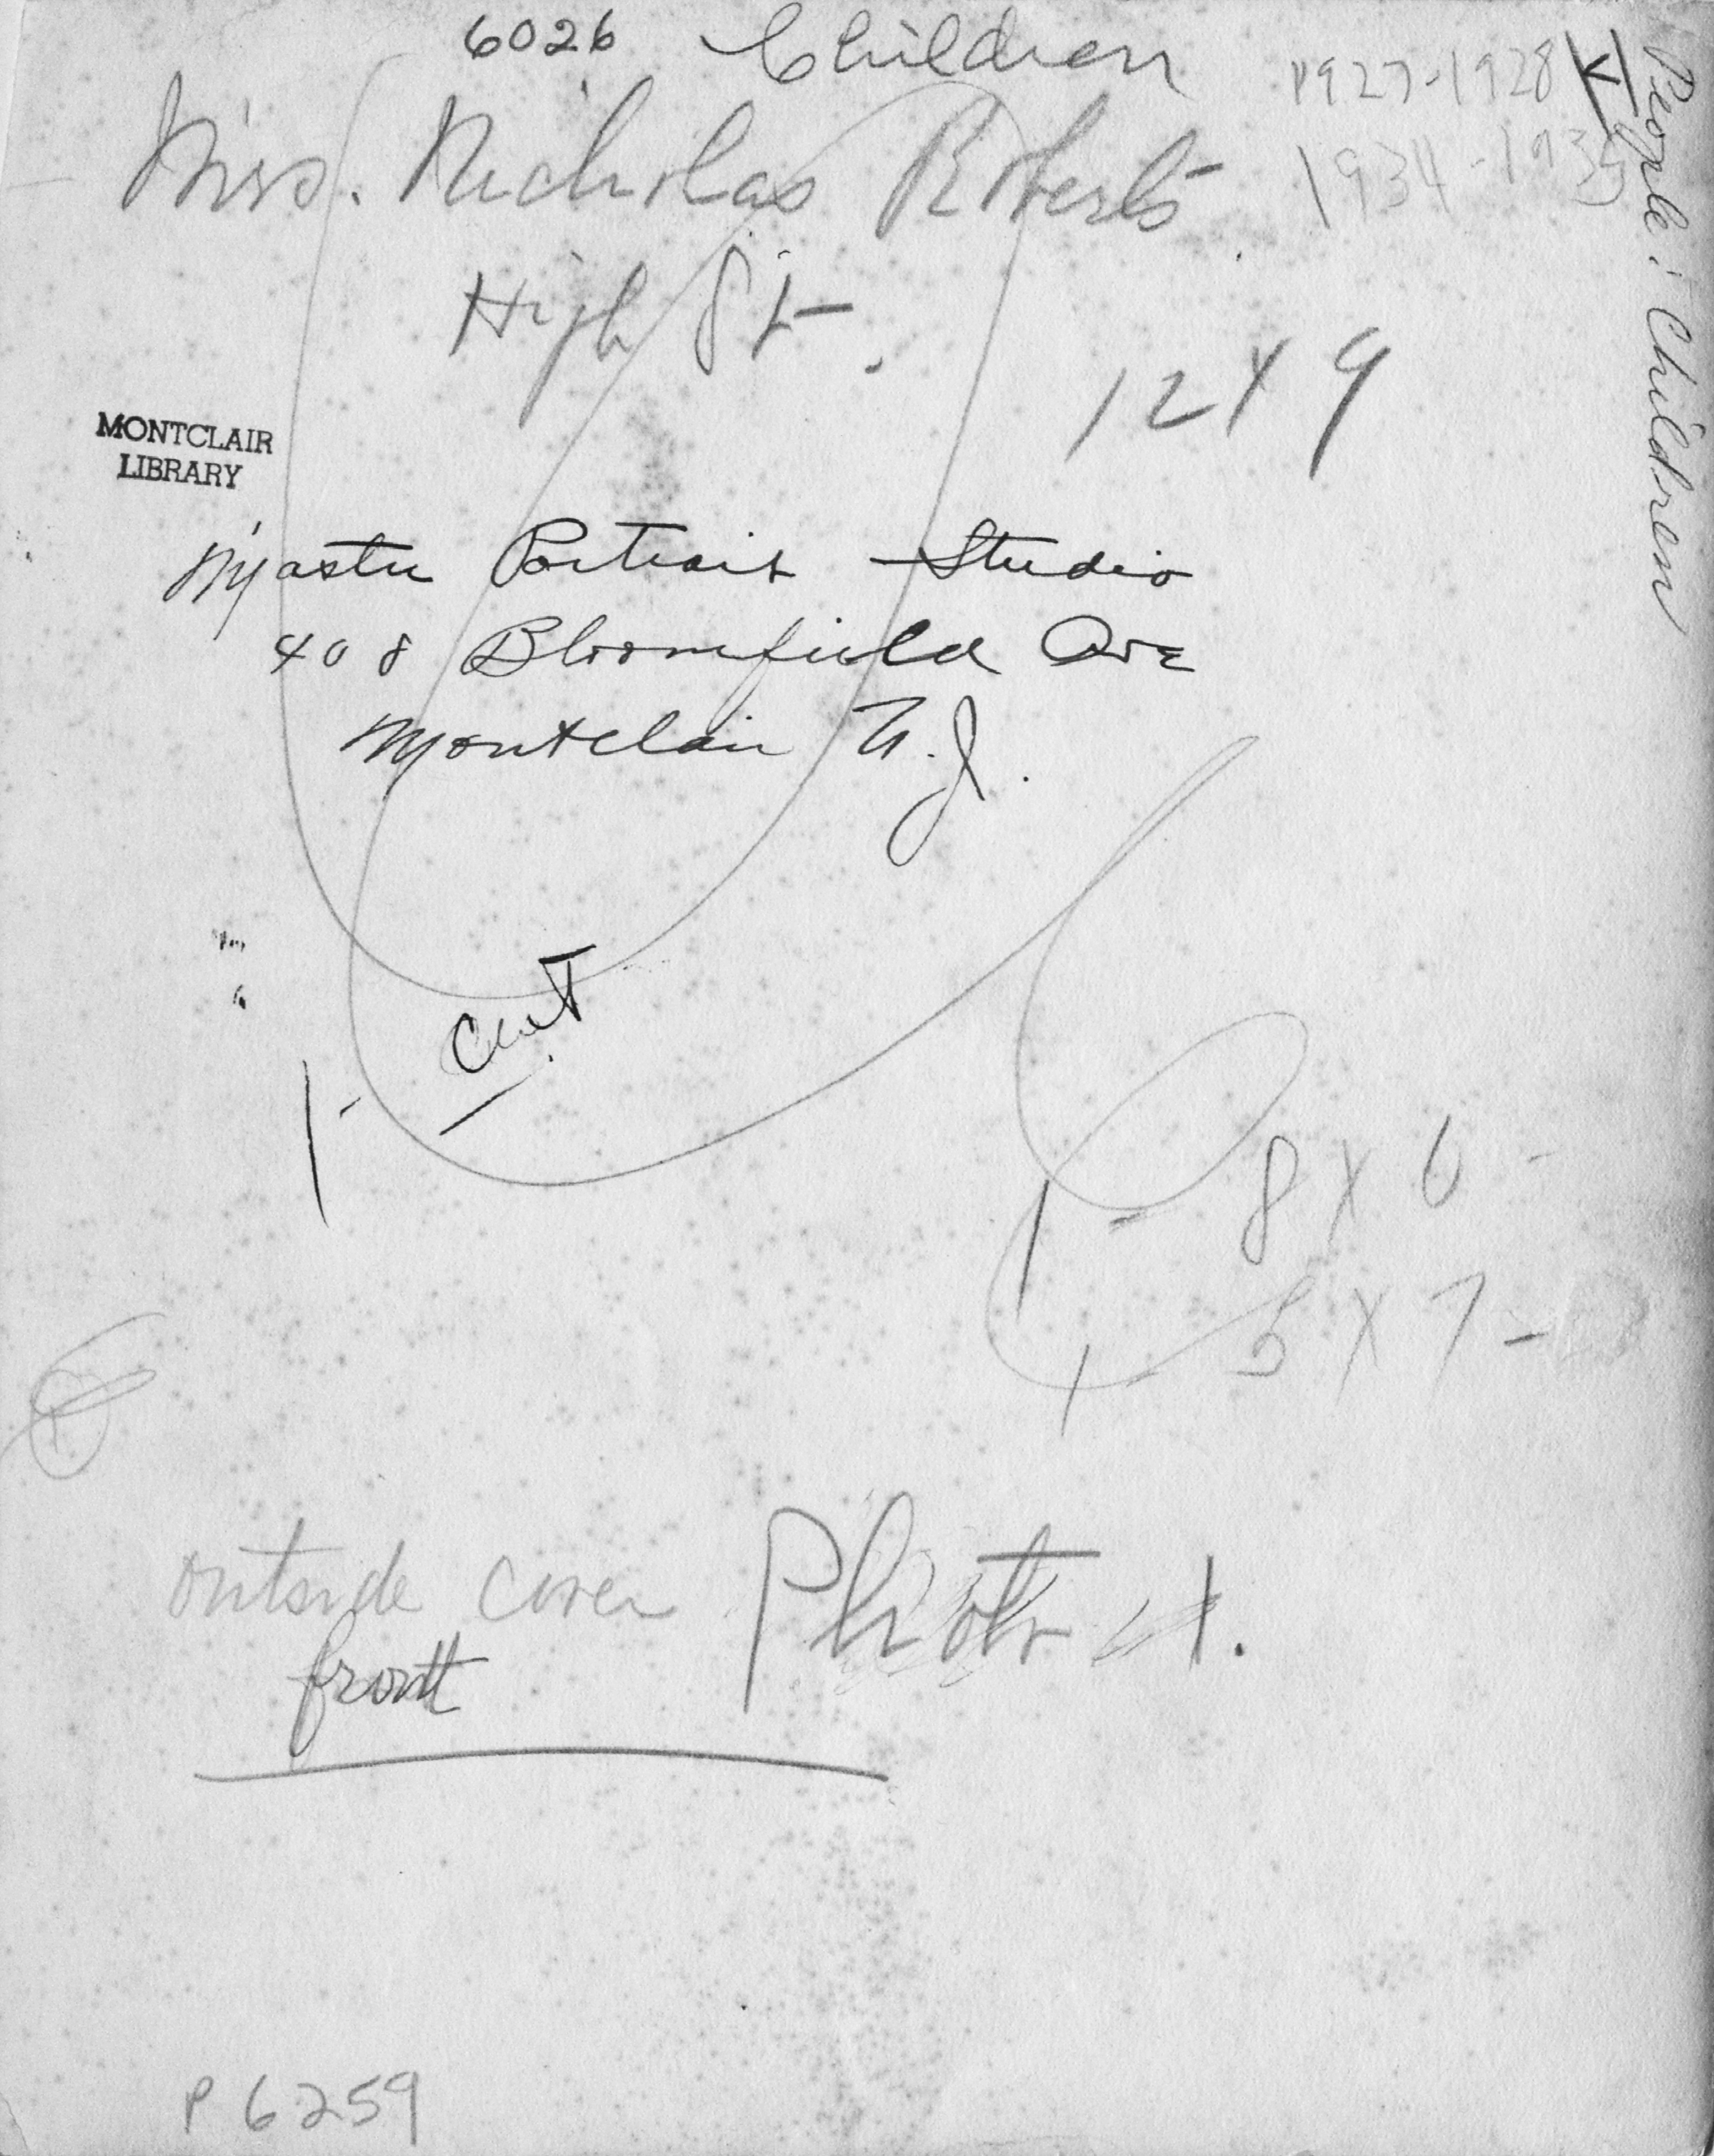 6026 Children
1927-1928
1934-1935
V
People: Children
Mrs. Nicholas Roberts
High St.
12 x 9
MONTCLAIR
LIBRARY
Master Portrait Studio
408 Bloomfield Ave
Montclair N.J.
1 - Cut
1 - 8 x 6 -
1 - 5 x 7 -
outside cover
front
Photo
P 6259